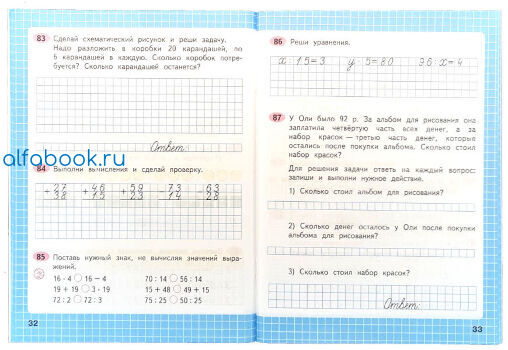 83 Сделай схематический рисунок и реши задачу.
Надо разложить в коробки 20 карандашей, по
6 карандашей в каждую. Сколько коробок потре-
буется? Сколько карандашей останется?
Ответ:
alfabook.ru
84 Выполни вычисления и сделай проверку.
+27 +46 +59 -73 -63
38 15 23 14 28
85 Поставь нужный знак, не вычисляя значений выра-
жений.
16 · 4 ○ 16 − 4 70 : 14 ○ 56 : 14
19 + 19 ○ 3 · 19 15 + 48 ○ 49 + 15
72 : 2 ○ 72 : 3 75 : 25 ○ 50 : 25
32
86 Реши уравнения.
x : 15 = 3 y · 5 = 80 96 : x = 4
87 У Оли было 92 р. За альбом для рисования она
заплатила четвёртую часть всех денег, а за
набор красок — третью часть денег, которые
остались после покупки альбома. Сколько стоил
набор красок?
Для решения задачи ответь на каждый вопрос:
запиши и выполни нужное действие.
1) Сколько стоил альбом для рисования?
2) Сколько денег осталось у Оли после покупки
альбома для рисования?
3) Сколько стоил набор красок?
Ответ:
33